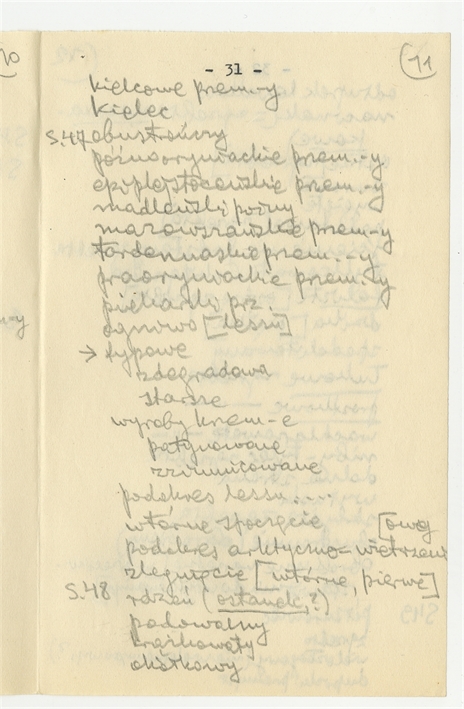 - 31 -
11
kielcowe przem-y
kielec
S.47 obustronny
późnooryniackie przem.-y
epiplejstoceńskie przem.-y
madleński późny
mazowszańskie przem-y
tardenuaskie przem.-y
praoryniackie przem-y
piekarski prz.
ogniwo [lessu]
→ typowe
zdegradowa
starsze
wyroby krem-e
patynowane
podokres lessu....
wtórne
[owej
podokres arktyczno= wietrzeni
zlegnięcie [wtórne, pierw]
S.48 rdzeń (ostanek,?)
podowalny
krążkowaty